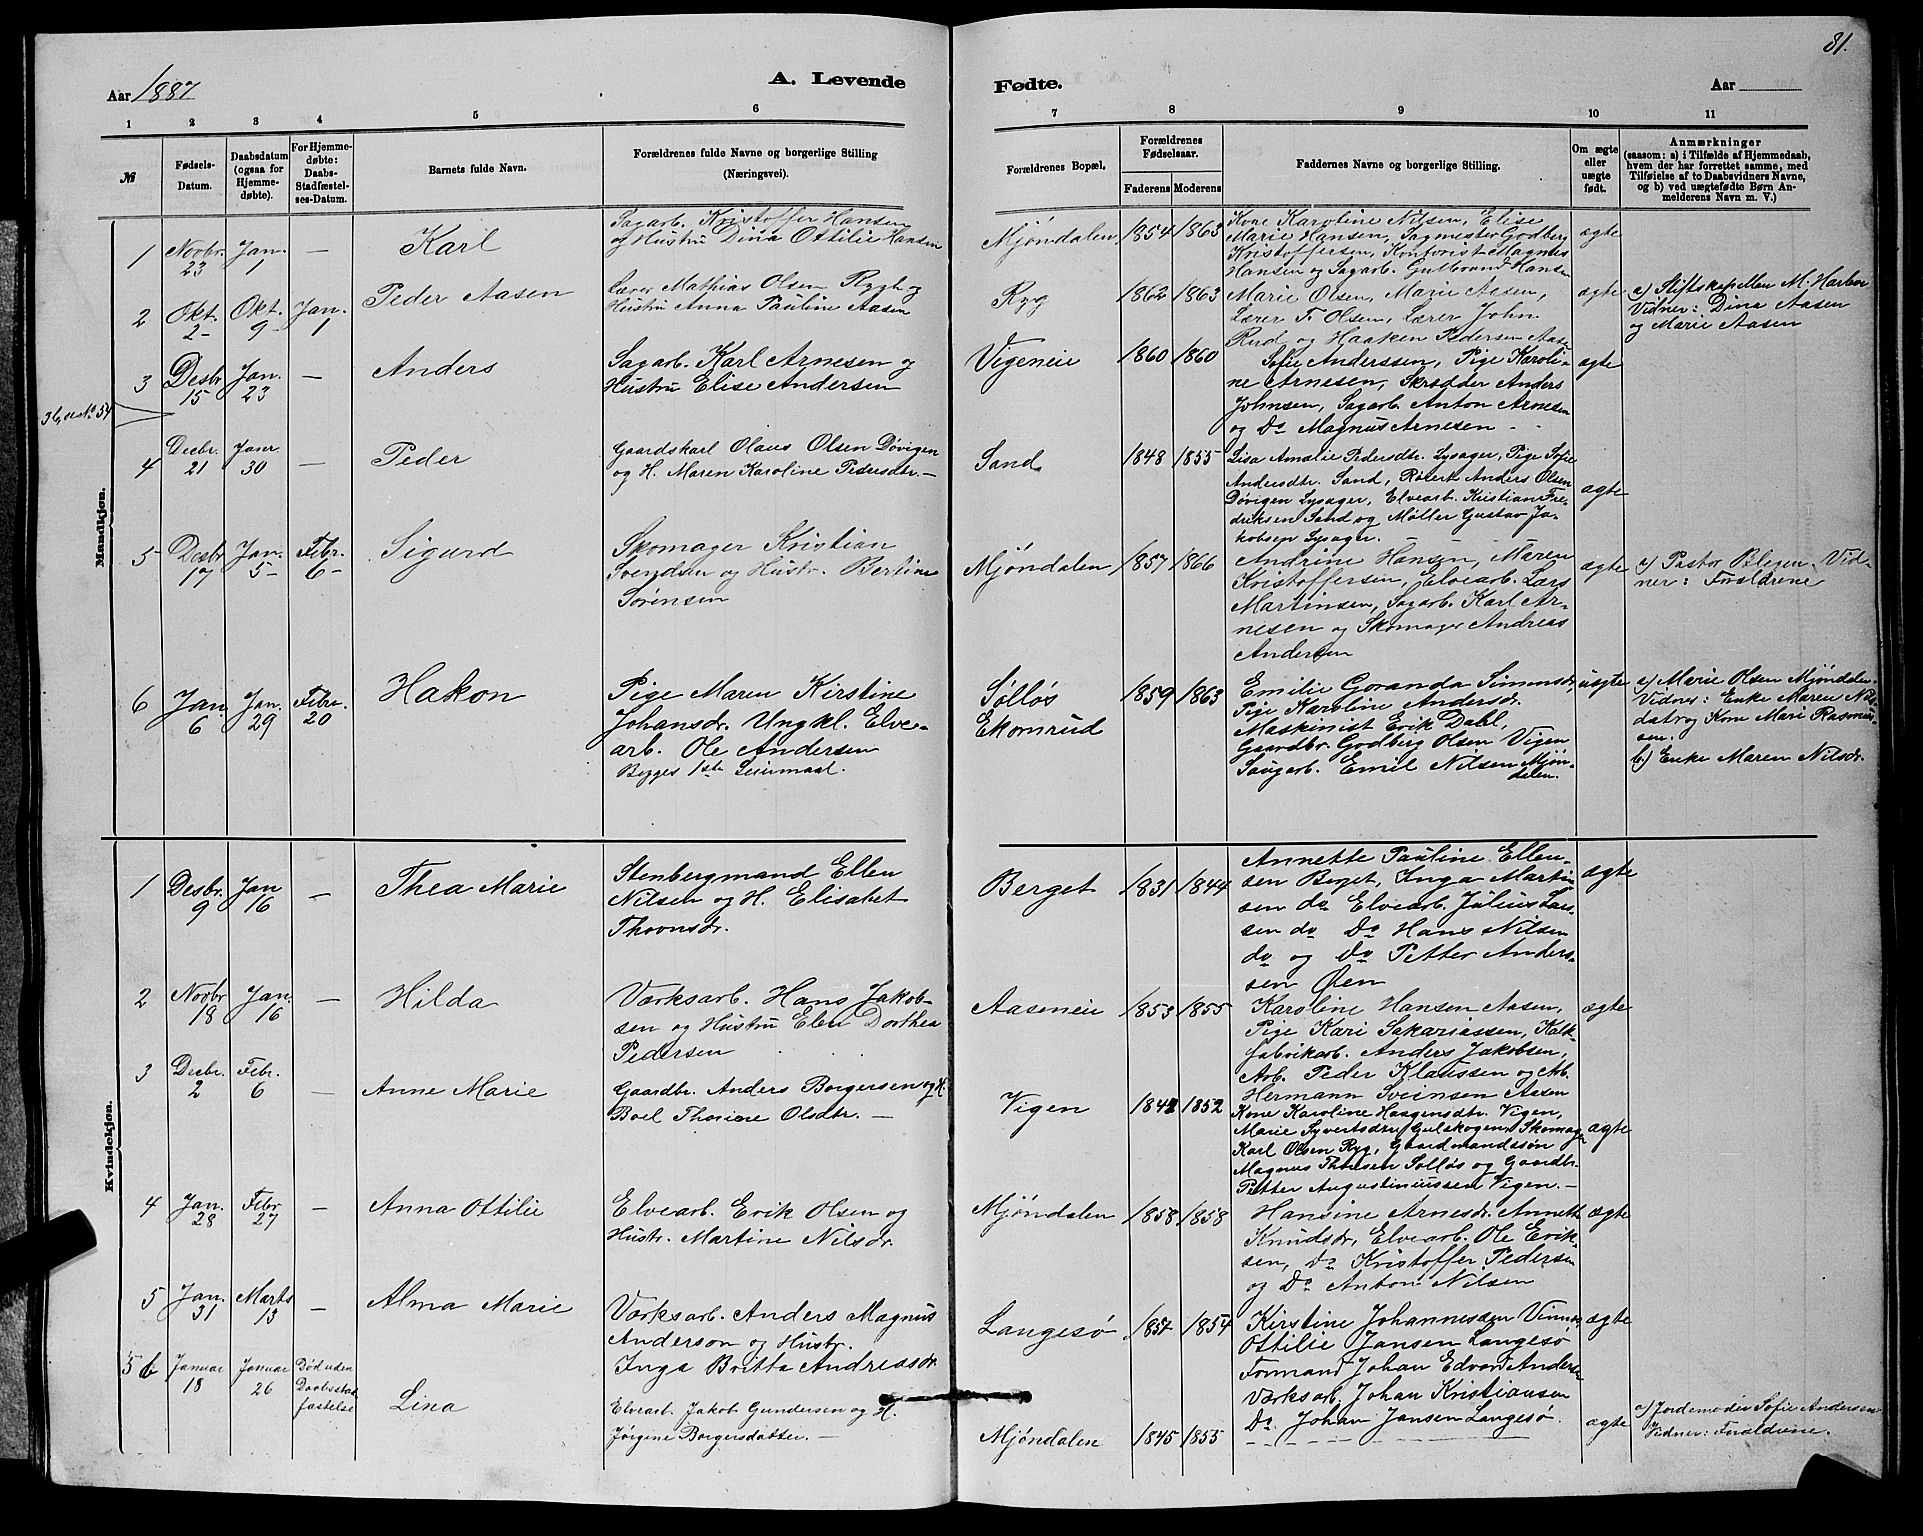 81.
Aar 1887
A. Levende
Fødte.
Aar
1 2 3 4 5 6 7 8 9 10 11
№
Fødsels-
Datum.
Daabsdatum
(ogsaa for
Hjemme-
døbte).
For Hjemme-
døbte:
Daabs-
Stadfæstel-
ses-Datum.
Barnets fulde Navn.
Forældrenes fulde Navne og borgerlige Stilling
(Næringsvei).
Forældrenes Bopæl.
Forældrenes
Fødselsaar.
Faderens Moderens
Faddernes Navne og borgerlige Stilling.
Om ægte
eller
uægte
født.
Anmærkninger
(saasom: a) i Tilfælde af Hjemmedaab,
hvem der har forrettet samme, med
Tilføielse af to Daabsvidners Navne,
og b) ved uægtefødte Børn An-
melderens Navn m. V.)
Mandkjøn.
1
Novbr.
23
Jan.
1
—
Karl
Sagarb. Kristoffer Hansen
og Hustru Dina Ottilie Hansen
Mjöndalen
1854
1863
Kone Karoline Nilsen, Elise
Marie Hansen, Sagmester Godberg
Kristoffersen, Kontorist Magnus
Hansen og Sagarb. Gulbrand Hansen
ægte
2
Okt.
2
Okt.
9
Jan.
1
Peder Aasen
Lærer Mathias Olsen Rygh og
Hustru Anna Pauline Aasen
Ryg
1862
1863
Marie Olsen, Marie Aasen,
Lærer T. Olsen, Lærer John
Rud og Haaken Pedersen Aasen
ægte
a) Stiftskapellan M. Harbo
Vidner: Dina Aasen
og Marie Aasen
3
Desbr
15
Jan.
23
—
Anders
Sagarb. Karl Arnesen og
Hustru Elise Andersen
Vigeneie
1860
1860
Sofie Anderssen, Pige Karoli-
ne Arnesen, Skrædder Anders
Johnsen, Sagarb. Anton Arnesen
og Do Magnus Arnesen
ægte
4
Decbr.
21
Janr.
30
—
Peder
Gaardskarl Olaus Olsen Døvigen
og H. Maren Karoline Pedersdtr.—
Sand
1848
1855
Lisa Amalie Pedersdtr. Lysager, Pige Sofie
Andersdtr. Sand, Røtert Anders Olsen
Døvigen Lysager, Elvearb. Kristian Fre-
driksen Sand og Møller Gustav Ja-
kobsen Lysager.
ægte
5
Desbr
17
Jan.
5
Febr.
6
Sigurd
Skomager Kristian
Svendsen og Hustr. Bertine
Sørensen
Mjöndalen
1857
1866
Andrine Hansen, Maren
Kristoffersen, Elvearb. Lars
Martinsen, Sagarb. Karl Ar-
nesen og Skomager Andreas
Andersen
ægte
a) Pastor Blegen. Vid-
ner: Forældrene
6
Jan.
6
Jan.
29
Febr.
20
Hakon
Pige Maren Kirstine
Johansdr. Ungkl. Elve-
arb. Ole Andersen
Begges 1ste Leiermaal.
Sølløs
Ekornrud
1859
1863
Emilie Goranda Simonsdr,
Pige Karoline Andersdr.
Maskinist Erik Dahl,
Gaardbr. Godberg Olsen Vigen
Saugarb. Emil Nilsen Mjön-
dalen.
uægte
a) Marie Olsen Mjöndalen
Vidner: Enke Maren Nils-
datr og Kone Mari Rasmus-
sen.
b) Enke Maren Nilsdr.
Kvindekjøn.
1
Desbr.
9
Jan
16
—
Thea Marie
Stenbergmand Ellen
Nilsen og H. Elisabet
Thovnsdr.
Berget
1831
1844
Annette Pauline Ellen-
sen Berget, Inga Martin
sen do Elvearb. Julius Lar-
sen do Do Hans Nilsen
do og Do Petter Anders-
sen Øen
ægte
2
Novbr
18
Jan.
16
—
Hilda
Værksarb. Hans Jakob-
sen og Hustru Elen Dorthea
Pedersen
Aaseneie
1853
1855
Karoline Hansen Aasen,
Pige Kari Sakariassen, Kalk-
fabrikarb. Anders Jakobsen,
Arb. Peder Klaussen og Arb.
Hermann Sveinsen Aasen
ægte
3
Desbr.
2
Febr.
6
—
Anne Marie
Gaardbr. Anders Borgersen og H.
Boel Thorine Olsdtr. —
Vigen
1842
1852
Kone Karoline Haagensdtr. Vigen,
Marie Syvertsdtr Gulskogen, Skomager
Karl Olsen Ryg, Gaardmandssøn
Magnus Thorsen Sølløs og Gaardbr.
Petter Augustiniussen Vigen.—
ægte
4
Jan.
28
Febr
27
—
Anna Ottilie
Elvearb. Erik Olsen og
Hustr. Martine Nilsdr.
Mjöndalen
1858
1858
Hansine Arnesdr. Annette
Knudsdr, Elvearb. Ole Erik-
sen, Do Kristoffer Pedersen
og Do Anton Nilsen
ægte
5
Jan.
31
Marts
13
—
Alma Marie
Værksarb. Anders Magnus
Anderson og Hustr.
Inga Britta Andreasdr
Langesø
1854
Kirstine Johannessen
Ottilie Jansen Langesø
Formand Johan Edvard Andersen
Værksarb. Johan Kristiansen
Do Johan Jansen Langesø.
ægte
6
Januar
18
Januar
26
Død uden
Daabsstad-
fæstelse
Lina
Elvearb. Jakob Gundersen og H.
Jørgine Borgersdatter.—
Mjöndalen
1845
1855
ægte
a) Jordemoder Sofie Andersen
Vidner: Forældrene.